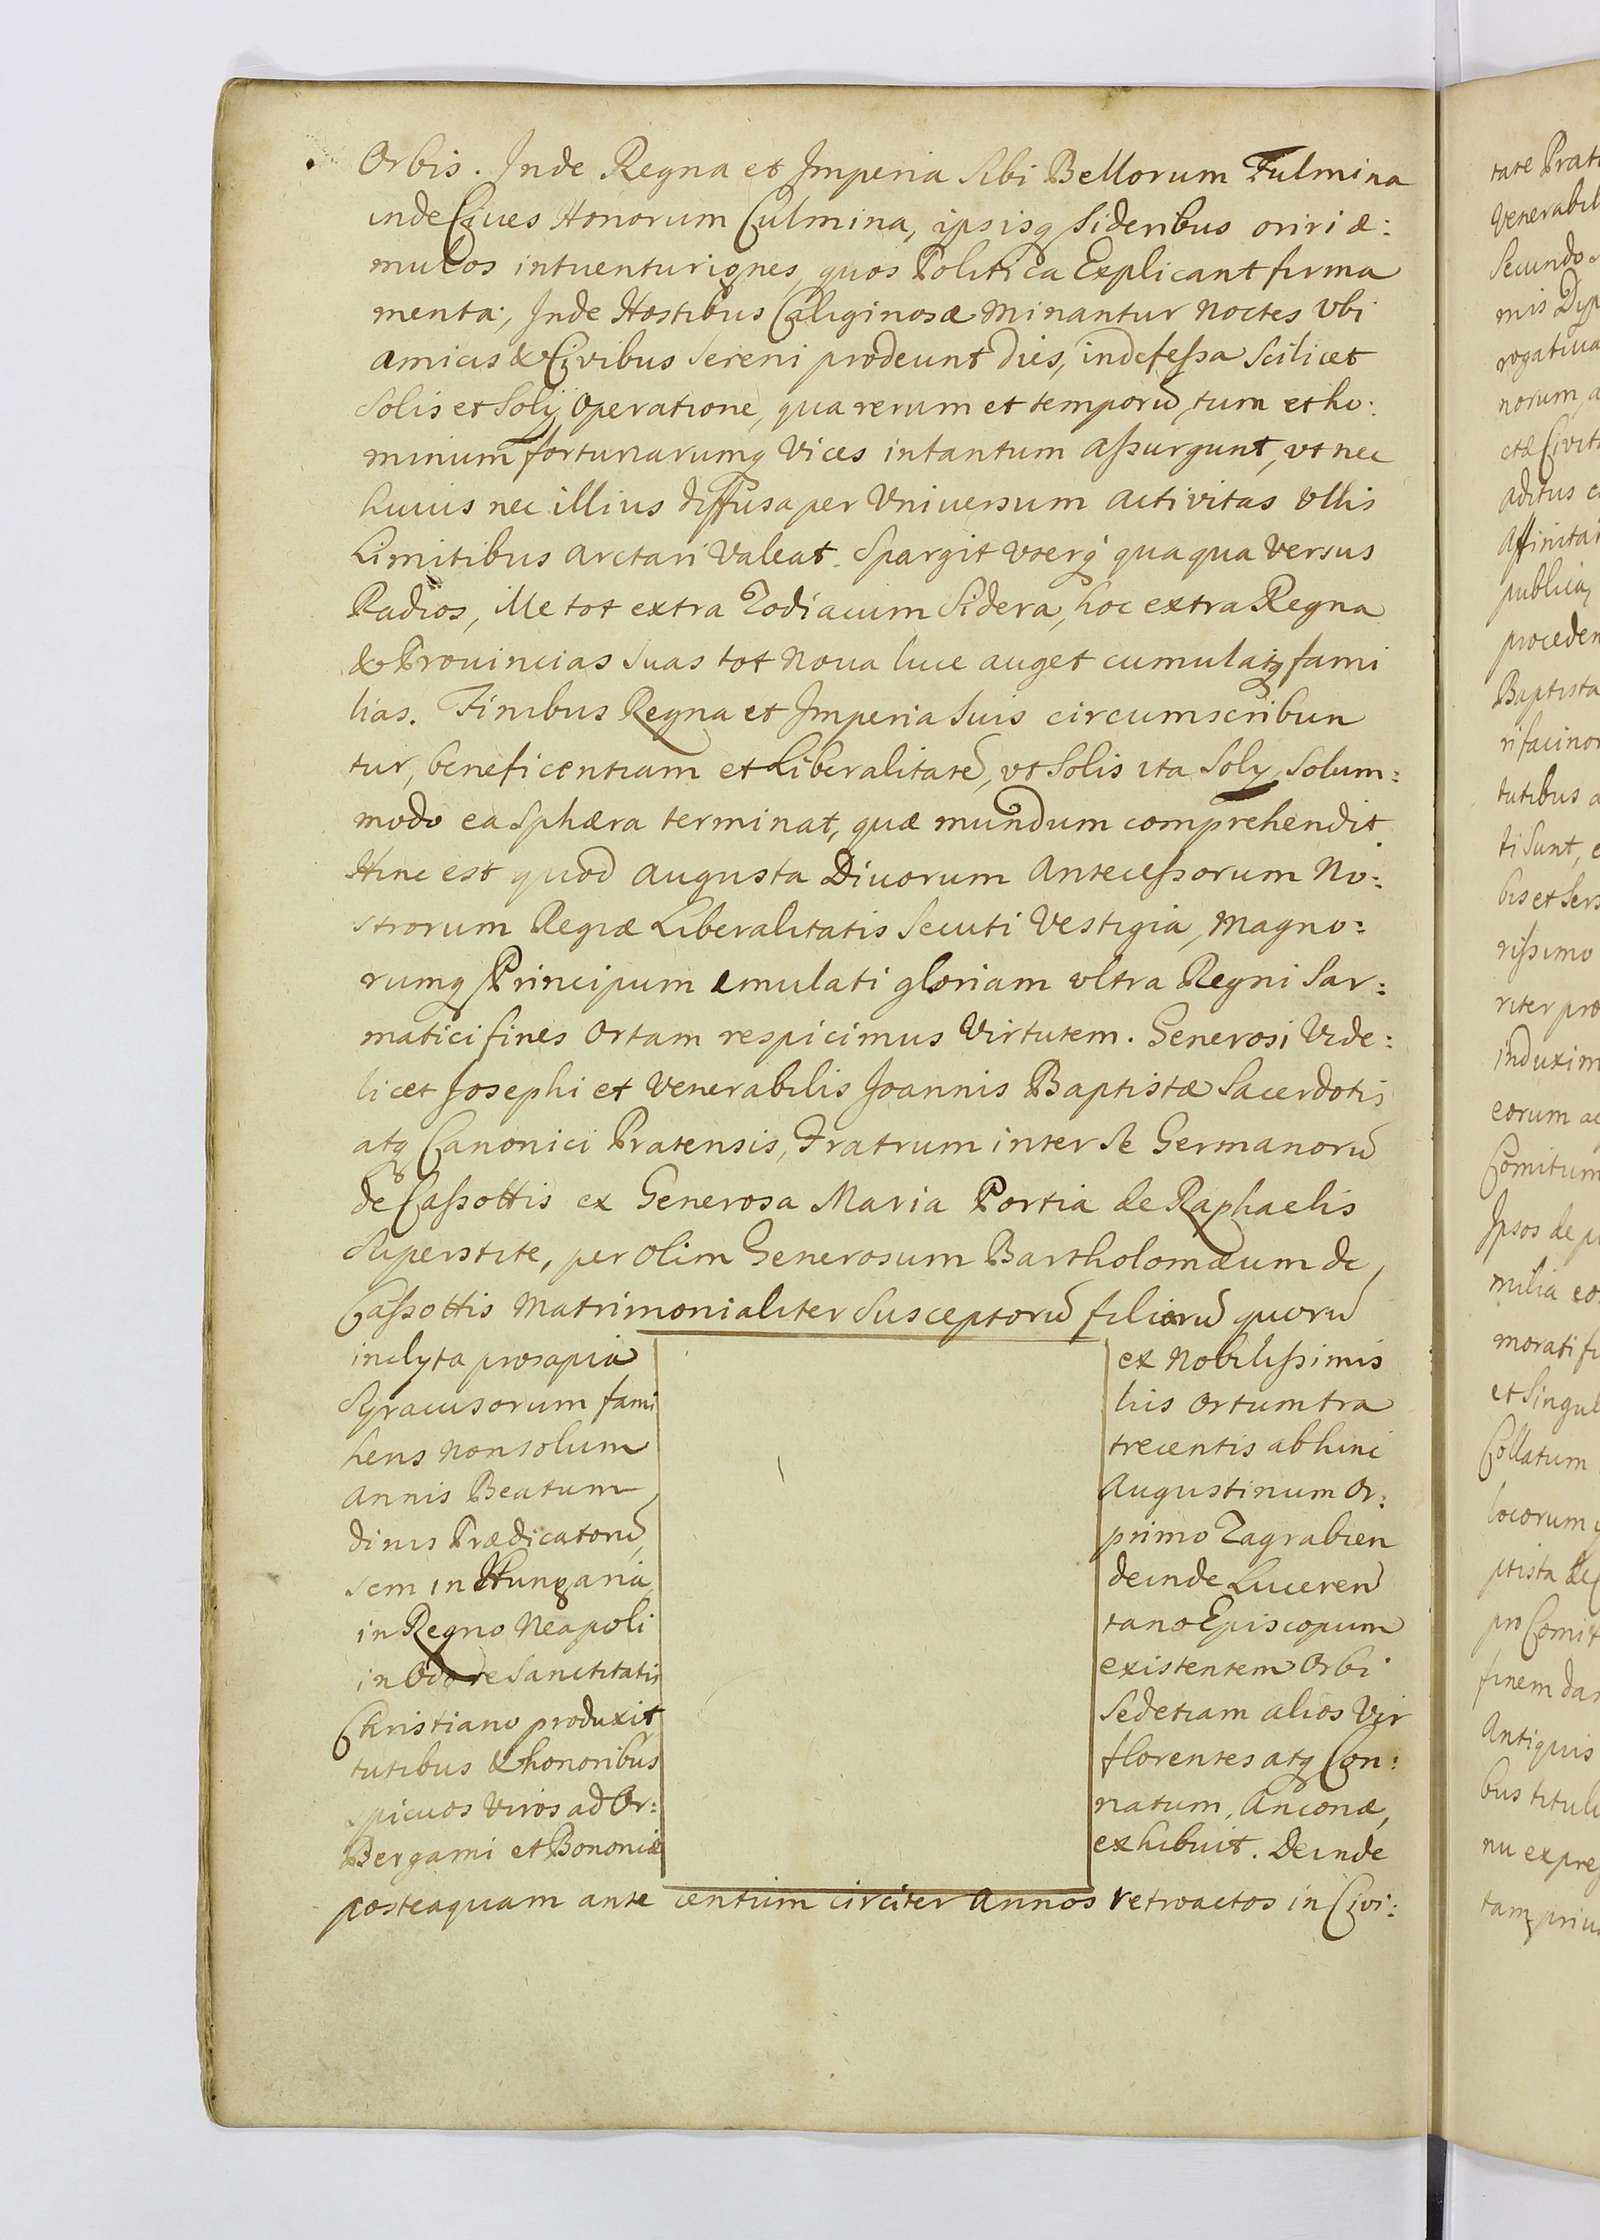 Orbis. Inde Regna et Imperia sibi Bellorum Fulmina
inde Ciues Honorum Culmina, ipsisq sideribus oriri æ:
mulos intuentur ignes, quos Politica Explicant firma
menta; Inde Hostibus Caliginosæ minantur noctes Vbi
amicis & Civibus sereni prodeunt dies, indefessa scilicet
Solis et Solij operatione, qua rerum et temporū, tum et ho:
minum fortunarumq vices intantum assurgunt, vt nec
huius nec illius diffusa per Vniuersum activitas Vllis
Limitibus arctari Valeat. Spargit vterq quaqua versus
Radios, Ille tot extra Zodiacum Sidera, hoc extra Regna
& Prouincias suas tot noua luce auget cumulatq fami
lias. Finibus Regna et Imperia suis circumscribun
tur, beneficentiam et Liberalitatē, vt Solis ita Solij, solum:
modo ea sphæra terminat, quæ mundum comprehendit
Hinc est quod augusta Diuorum Antecessorum No:
strorum Regiæ Liberalitatis secuti Vestigia, magno:
rumq Principum emulati gloriam vltra Regni Sar:
matici fines ortam respicimus Virtutem. Generosi Vide:
licet Josephi et Venerabilis Joannis Baptistæ Sacerdotis
atq Canonici Pratensis, Fratrum inter se Germanorū
de Cassottis ex Generosa Maria Portia de Raphaelis
superstite, per olim Generosum Bartholomæum de
Cassottis matrimonialiter susceptorū filiorū quorū
inclyta prosapia ex nobilissimis
Syracusorum fami liis ortum tra
hens non solum trecentis abhinc
annis Beatum Augustinum Or:
dinis Prædicatorū, primo Zagrabien
sem in Hungaria, deinde Luceren
in Regno Neapoli tano Episcopum
in Odore Sanctitatis existentem Orbi
Christiano produxit sed etiam alios Vir
tutibus & honoribus florentes atq Con:
spicuos viros ad Or: natum, Anconæ,
Bergami et Bononiæ exhibuit. Deinde
posteaquam ante centum circiter Annos retroactos in Civi: